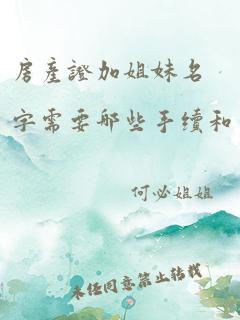 房產證加姐妹名
字需要哪些手續和
何必姐姐
未經同意禁止轉載